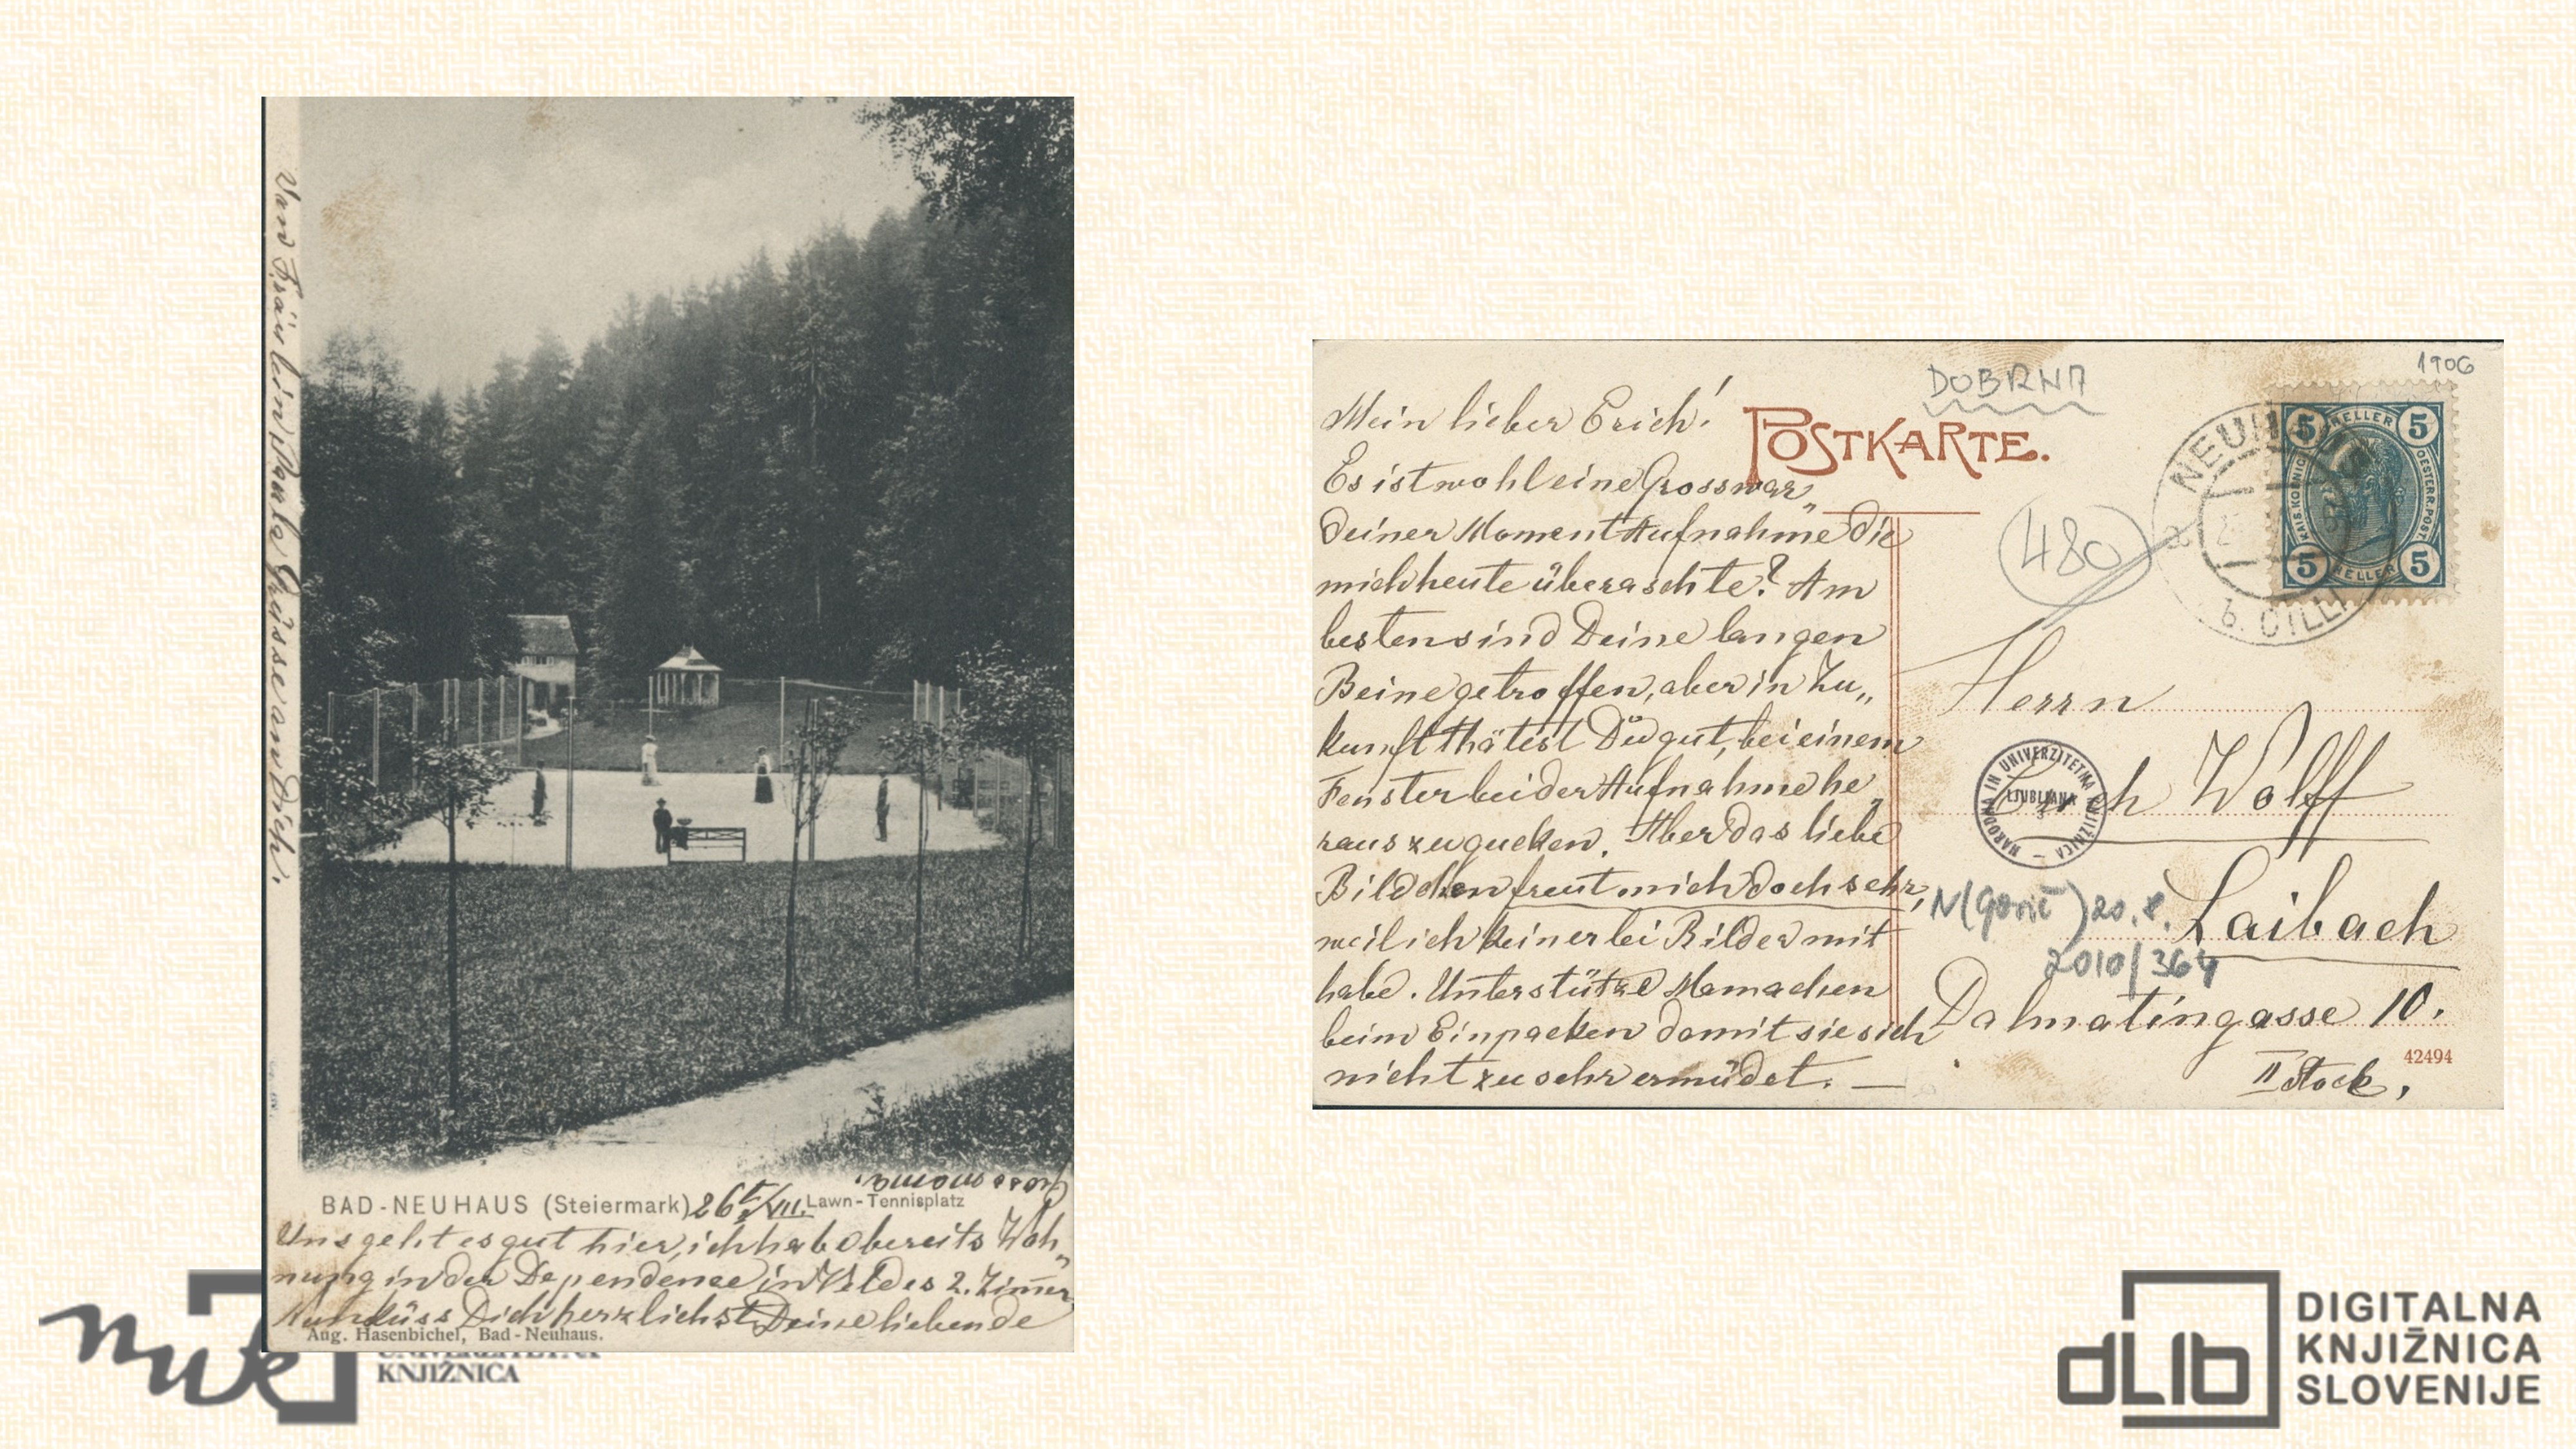 Von Fräulein Paula Grüsse an Dich.
BAD-NEUHAUS (Steiermark) 26t/VII. Lawn-Tennisplatz
Grossmama.
Uns geht es gut hier, ich habe bereits Woh„
nung in der Dependence in Veldes 2. Zim̄er
küss Dich herzlichst Deine liebende
Aug. Hasenbichel, Bad-Neuhaus.
KNJIŽNICA
1906
DOBRNA
POSTKARTE.
Mein lieber Erich!
Es ist wohl eine Gross war„
deiner Moment Aufnahme die
mich heute überraschte? Am
besten sind Deine langen
Beine getroffen, aber in Zu„
kunft thätest Du gut, bei einem
Fenster bei der Aufnahme he„
raus zu gucken. Aber das liebe
Bildchen freut mich doch sehr,
weil ich keinerlei Bilder mit
habe. Unterstütze Mamachen
beim Einpacken damit sie sich
nicht zu sehr ermüdet. —
5 HELLER 5
KAIS. KOENIGL. OESTERR. POST
5 HELLER 5
NEUHAUS
b. CILLI
480
Herrn
Erich Wolff
NARODNA IN UNIVERZITETNA KNJIŽNICA
LJUBLJANA
N(Gorič) 20.8.
2010/364
Laibach
Dalmatingasse 10.
II Stock,
42494
nuk
dLib
DIGITALNA
KNJIŽNICA
SLOVENIJE